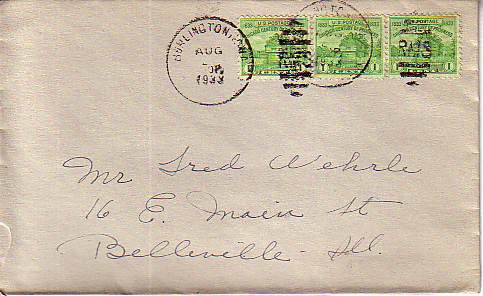 BURLINGTON
AUG
1933
U.S. POSTAGE U.S. POSTAGE U.S. POSTAGE
1 1 1
Mr Fred Wehrle
16 E. Main St
Belleville Ill.